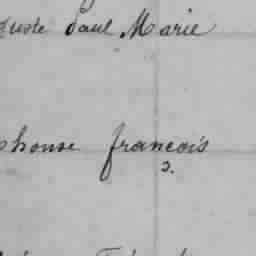 guste Paul Marie
phonse francois
2.